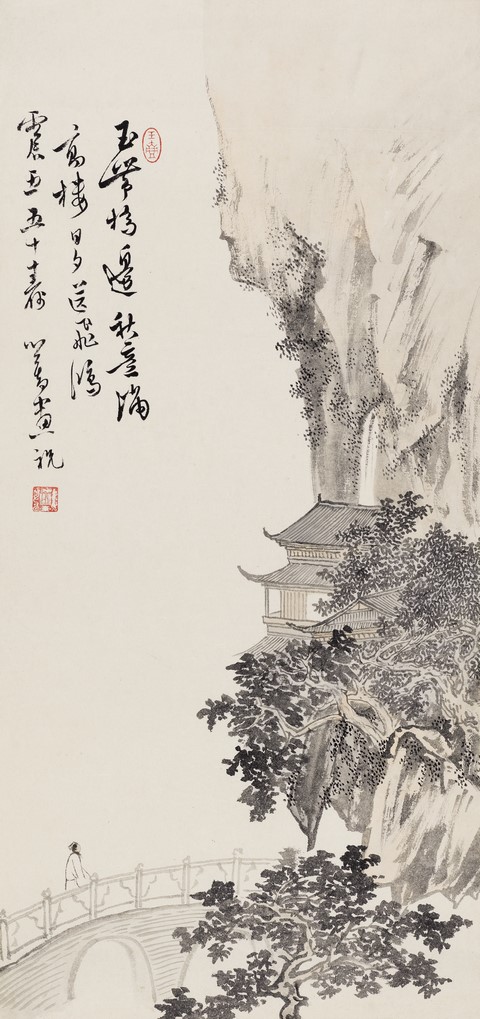 玉帶橋邊秋意滿
高樓日夕送飛鴻
震亞五十壽 心畬畫祝